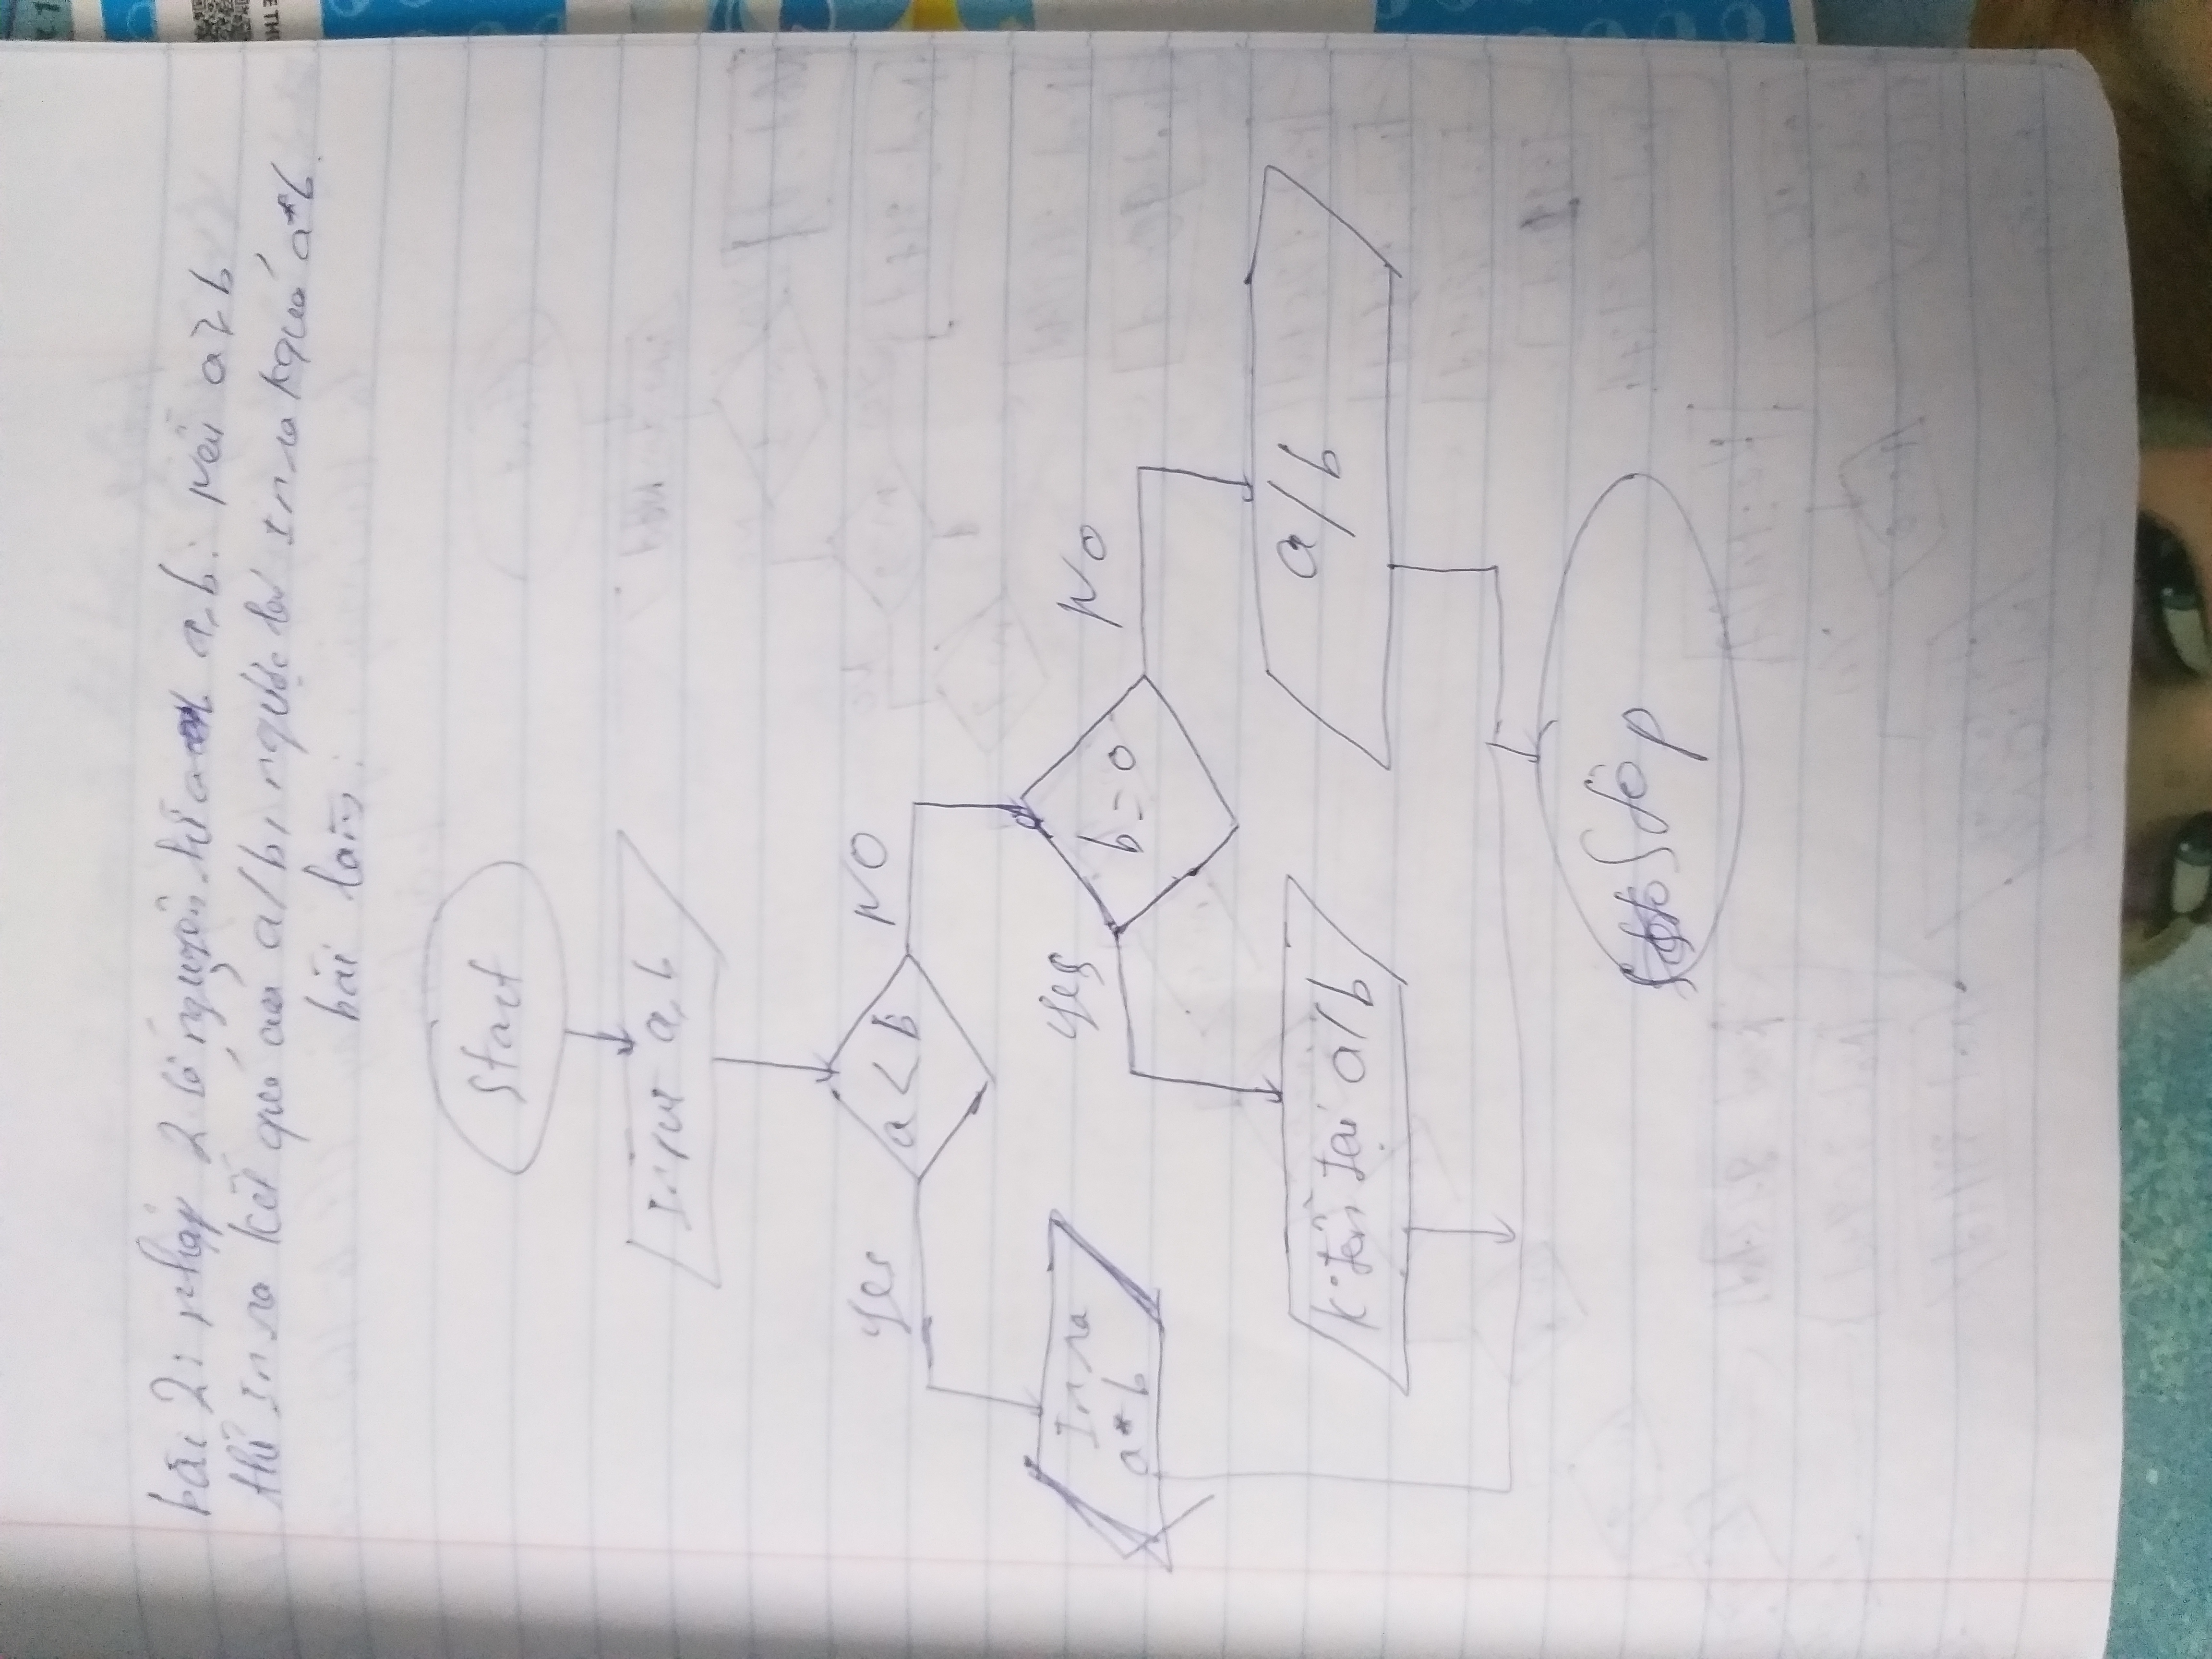 bài 2: nhập 2 số nguyên a, b. nếu a ≥ b
thì In ra kết quả của a/b, ngược lại In ra kquả a*b.
bài làm:
Start
Input a,b
a < b
Yes
NO
In ra
a*b
b = 0
Yes
NO
k tồn tại a/b
a/b
Stop